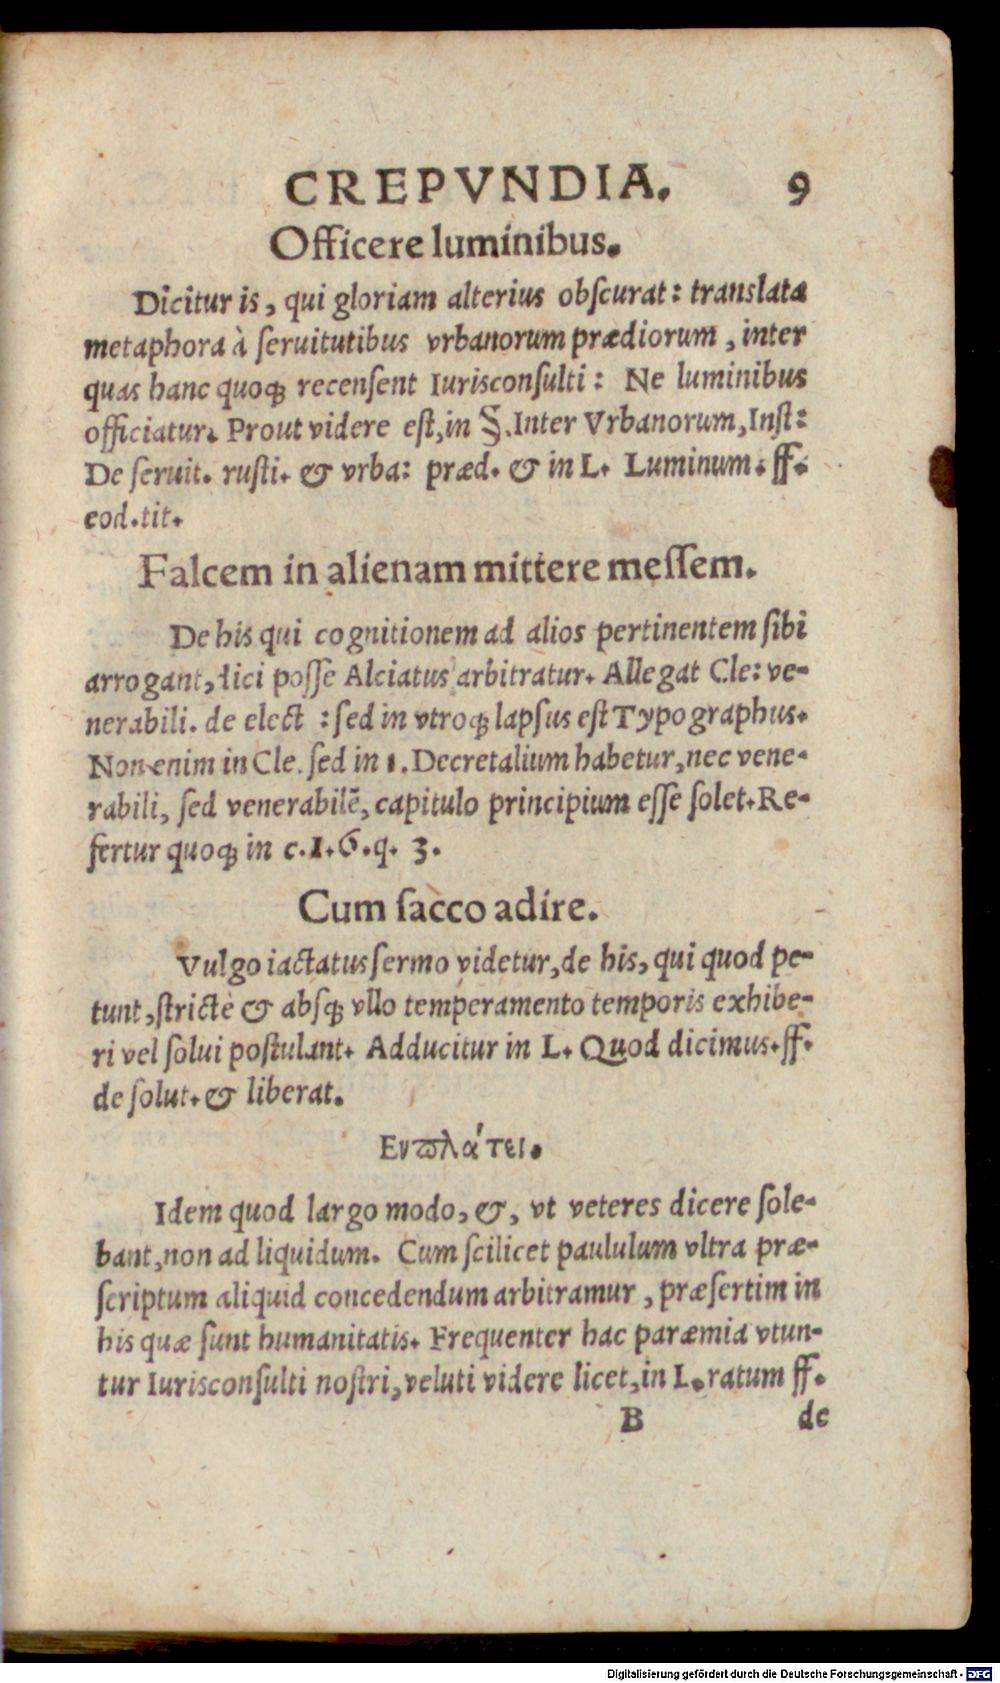 CREPVNDIA. 9
Officere luminibus.
Dicitur is, qui gloriam alterius obſcurat: translata
metaphora à ſeruitutibus vrbanorum prædiorum, inter
quas hanc quoq; recenſent Iurisconſulti: Ne luminibus
officiatur. Prout videre eſt, in §. Inter Vrbanorum, Inſt:
De ſeruit. ruſti. & vrba: præd. & in L. Luminum. ff.
eod. tit.
Falcem in alienam mittere meſſem.
De his qui cognitionem ad alios pertinentem ſibi
arrogant, dici poſſe Alciatus arbitratur. Allegat Cle: ve-
nerabili. de elect: ſed in vtroq; lapſus eſt Typographus.
Non enim in Cle. ſed in 1. Decretalium habetur, nec vene-
rabili, ſed venerabilē, capitulo principium eſſe ſolet. Re-
fertur quoq; in c. 1. 6. q. 3.
Cum ſacco adire.
Vulgo iactatus ſermo videtur, de his, qui quod pe-
tunt, ſtrictè & abſq; vllo temperamento temporis exhibe-
ri vel ſolui poſtulant. Adducitur in L. Quod dicimus. ff.
de ſolut. & liberat.
Ενϖλάτει.
Idem quod largo modo, &, vt veteres dicere ſole-
bant, non ad liquidum. Cum ſcilicet paululum vltra præ-
ſcriptum aliquid concedendum arbitramur, præſertim in
his quæ ſunt humanitatis. Frequenter hac paræmia vtun-
tur Iurisconſulti noſtri, veluti videre licet, in L. ratum ff.
B de
Digitalisierung gefördert durch die Deutsche Forschungsgemeinschaft - DFG